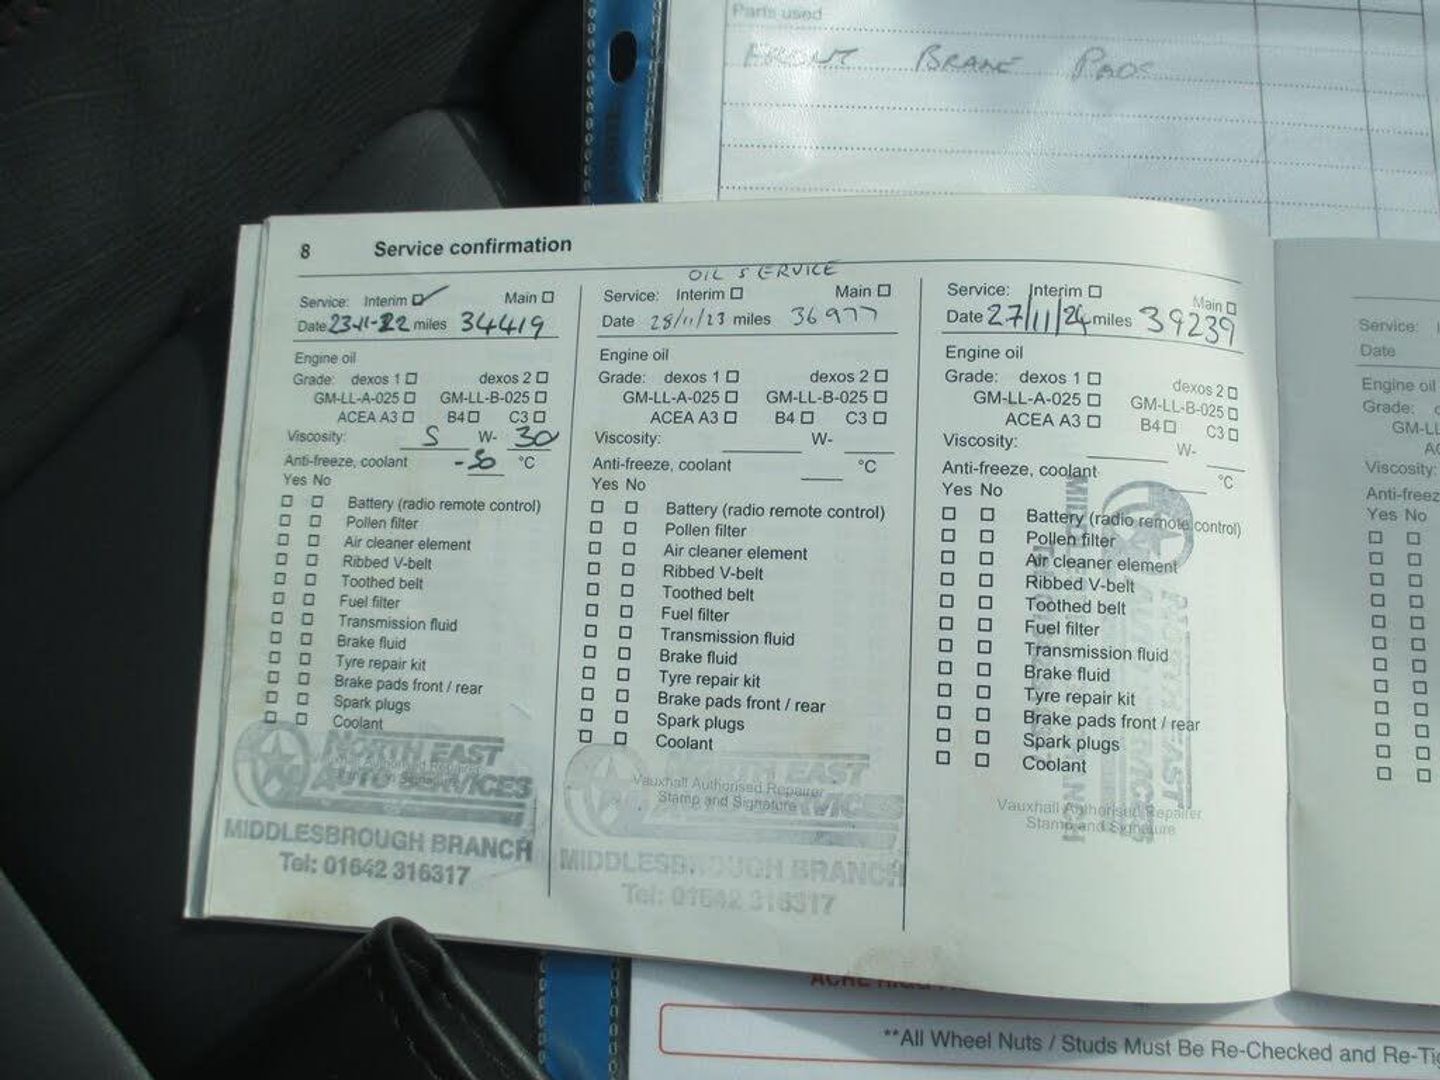 Parts used
FRONT BRAKE PADS
8 Service confirmation
Service: Interim ☑ Main ☐
Date 23-11-22 miles 34419
Engine oil
Grade: dexos 1 ☐ dexos 2 ☐
GM-LL-A-025 ☐ GM-LL-B-025 ☐
ACEA A3 ☐ B4 ☐ C3 ☐
Viscosity: 5 W- 30
Anti-freeze, coolant -50 °C
Yes No
☐ ☐ Battery (radio remote control)
☐ ☐ Pollen filter
☐ ☐ Air cleaner element
☐ ☐ Ribbed V-belt
☐ ☐ Toothed belt
☐ ☐ Fuel filter
☐ ☐ Transmission fluid
☐ ☐ Brake fluid
☐ ☐ Tyre repair kit
☐ ☐ Brake pads front / rear
☐ ☐ Spark plugs
☐ ☐ Coolant
NORTH EAST
AUTO SERVICES
MIDDLESBROUGH BRANCH
Tel: 01642 316317
OIL SERVICE
Service: Interim ☐ Main ☐
Date 28/11/23 miles 36977
Engine oil
Grade: dexos 1 ☐ dexos 2 ☐
GM-LL-A-025 ☐ GM-LL-B-025 ☐
ACEA A3 ☐ B4 ☐ C3 ☐
Viscosity: W-
Anti-freeze, coolant °C
Yes No
☐ ☐ Battery (radio remote control)
☐ ☐ Pollen filter
☐ ☐ Air cleaner element
☐ ☐ Ribbed V-belt
☐ ☐ Toothed belt
☐ ☐ Fuel filter
☐ ☐ Transmission fluid
☐ ☐ Brake fluid
☐ ☐ Tyre repair kit
☐ ☐ Brake pads front / rear
☐ ☐ Spark plugs
☐ ☐ Coolant
NORTH EAST
Vauxhall Authorised Repairer
Stamp and Signature
MIDDLESBROUGH BRANCH
Tel: 01642 316317
Service: Interim ☐ Main ☐
Date 27/11/24 miles 39239
Engine oil
Grade: dexos 1 ☐ dexos 2 ☐
GM-LL-A-025 ☐ GM-LL-B-025 ☐
ACEA A3 ☐ B4 ☐ C3 ☐
Viscosity: W-
Anti-freeze, coolant °C
Yes No
☐ ☐ Battery (radio remote control)
☐ ☐ Pollen filter
☐ ☐ Air cleaner element
☐ ☐ Ribbed V-belt
☐ ☐ Toothed belt
☐ ☐ Fuel filter
☐ ☐ Transmission fluid
☐ ☐ Brake fluid
☐ ☐ Tyre repair kit
☐ ☐ Brake pads front / rear
☐ ☐ Spark plugs
☐ ☐ Coolant
Vauxhall Authorised Repairer
Stamp and Signature
Service:
Date
Engine oil
Grade:
GM-LL
Viscosity:
Anti-freez
Yes No
**All Wheel Nuts / Studs Must Be Re-Checked and Re-Tig